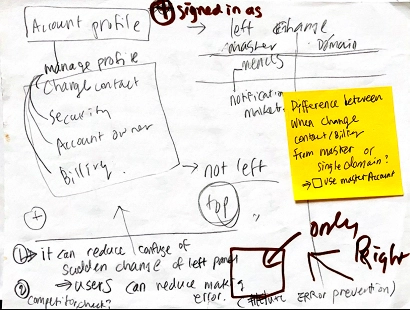 Account profile
+ signed in as
left change
master Domain
needs
manage profile
Change contact
Security
Account owner
Billing
notification
not left
top
+
Difference between
when change
contact/Billing
from master or
single Domain?
→ □ use master Account
only
Right
① → it can reduce confuse of
sudden change of left panel
② → users can reduce making
error.
competitor check?
ERROR prevention)